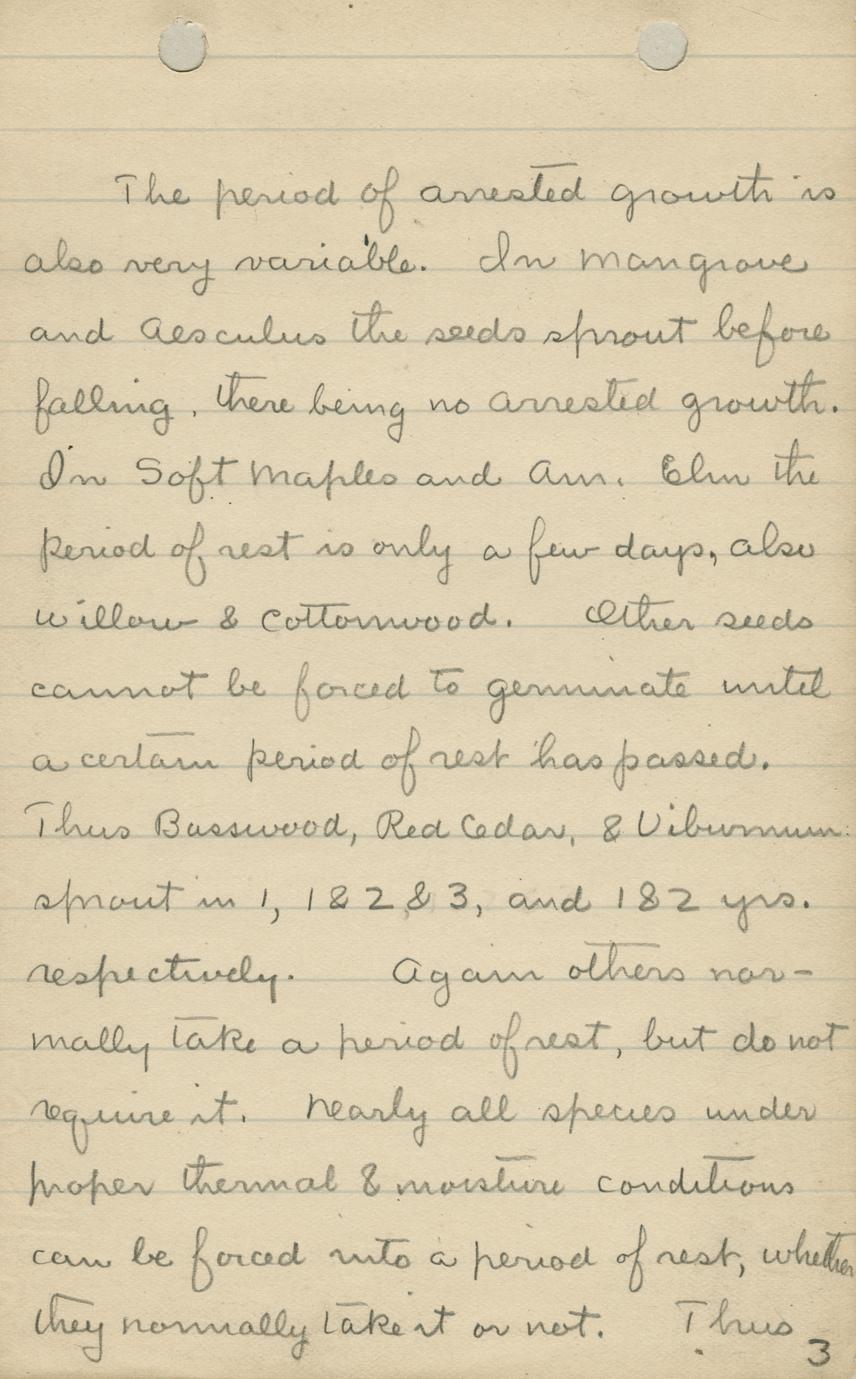 The period of arrested growth is
also very variable. In Mangrove
and Aesculus the seeds sprout before
falling, there being no arrested growth.
In Soft Maples and Am. Elm the
period of rest is only a few days, also
willow & cottonwood. Other seeds
cannot be forced to germinate until
a certain period of rest has passed.
Thus Basswood, Red Cedar, & Viburnum
sprout in 1, 1 & 2 & 3, and 1 & 2 yrs.
respectively. Again others nor-
mally take a period of rest, but do not
require it. Nearly all species under
proper thermal & moisture conditions
can be forced into a period of rest, whether
they normally take it or not. Thus
3